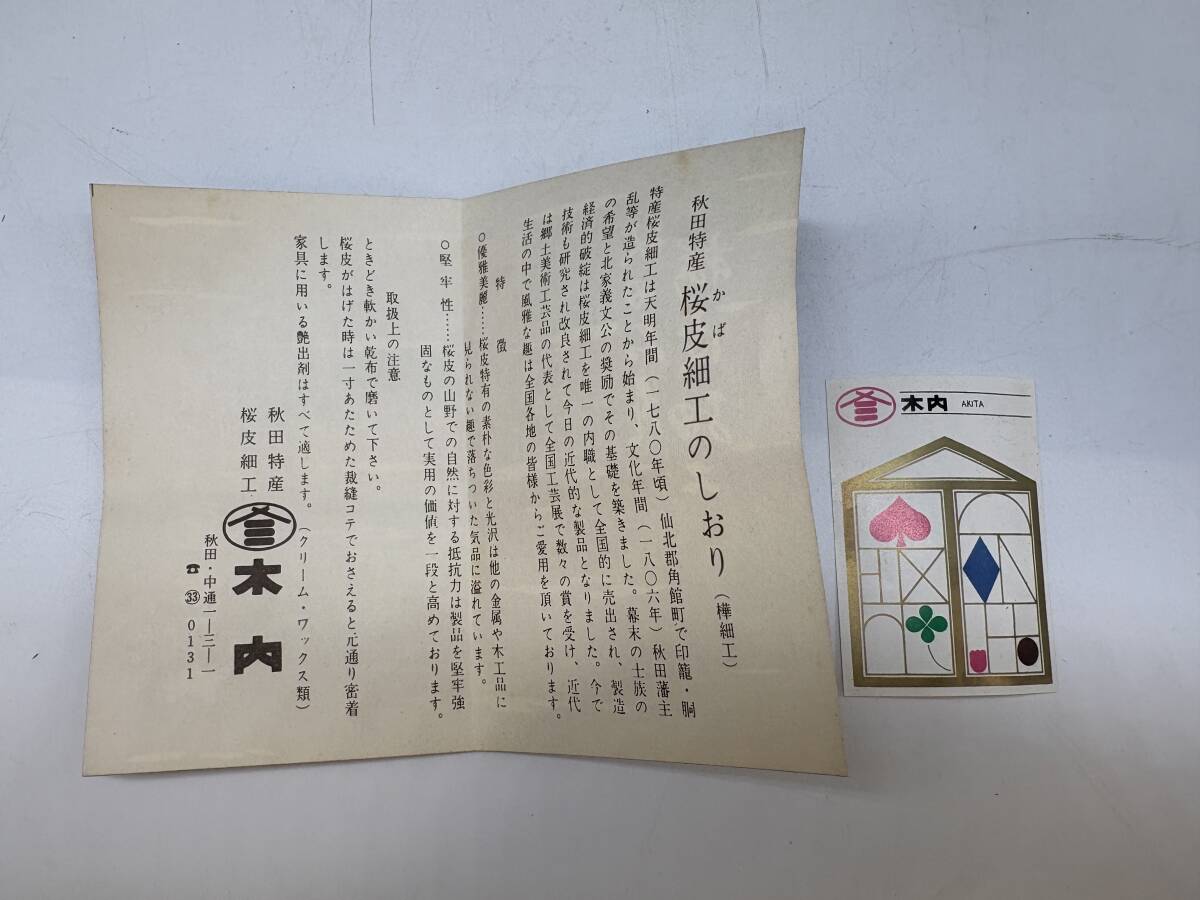 秋田特産 桜皮細工のしおり(樺細工)
かば
特産桜皮細工は天明年間(一七八〇年頃)仙北郡角館町で印籠・胴
乱等が造られたことから始まり、文化年間(一八〇六年)秋田藩主
の希望と北家義文公の奨励でその基礎を築きました。幕末の士族の
経済的破綻は桜皮細工を唯一の内職として全国的に売出され、製造
技術も研究され改良されて今日の近代的な製品となりました。今で
は郷土美術工芸品の代表として全国工芸展で数々の賞を受け、近代
生活の中で風雅な趣は全国各地の皆様からご愛用を頂いております。
特徴
○優雅美麗……桜皮特有の素朴な色彩と光沢は他の金属や木工品に
見られない趣で落ちついた気品に溢れています。
○堅牢性……桜皮の山野での自然に対する抵抗力は製品を堅牢強
固なものとして実用の価値を一段と高めております。
取扱上の注意
ときどき軟かい乾布で磨いて下さい。
桜皮がはげた時は一寸あたためた裁縫コテでおさえると元通り密着
します。
家具に用いる艶出剤はすべて適します。(クリーム・ワックス類)
秋田特産
桜皮細工
木内
秋田・中通一―三―一
☎㉝0131
木内 AKITA